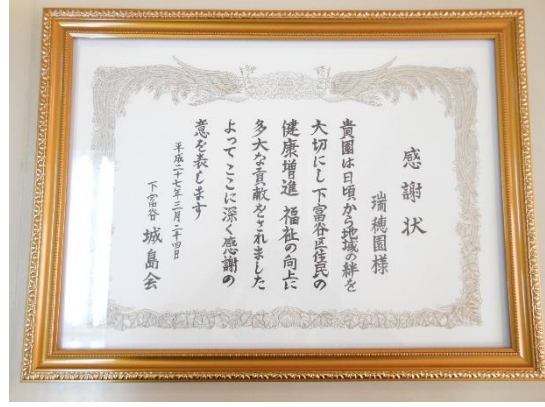 感謝状
瑞穂園様
貴園は日頃から地域の絆を
大切にし下富谷区住民の
健康増進 福祉の向上に
多大な貢献をされました
よってここに深く感謝の
意を表します
平成二十七年三月二十四日
下富谷 城島会